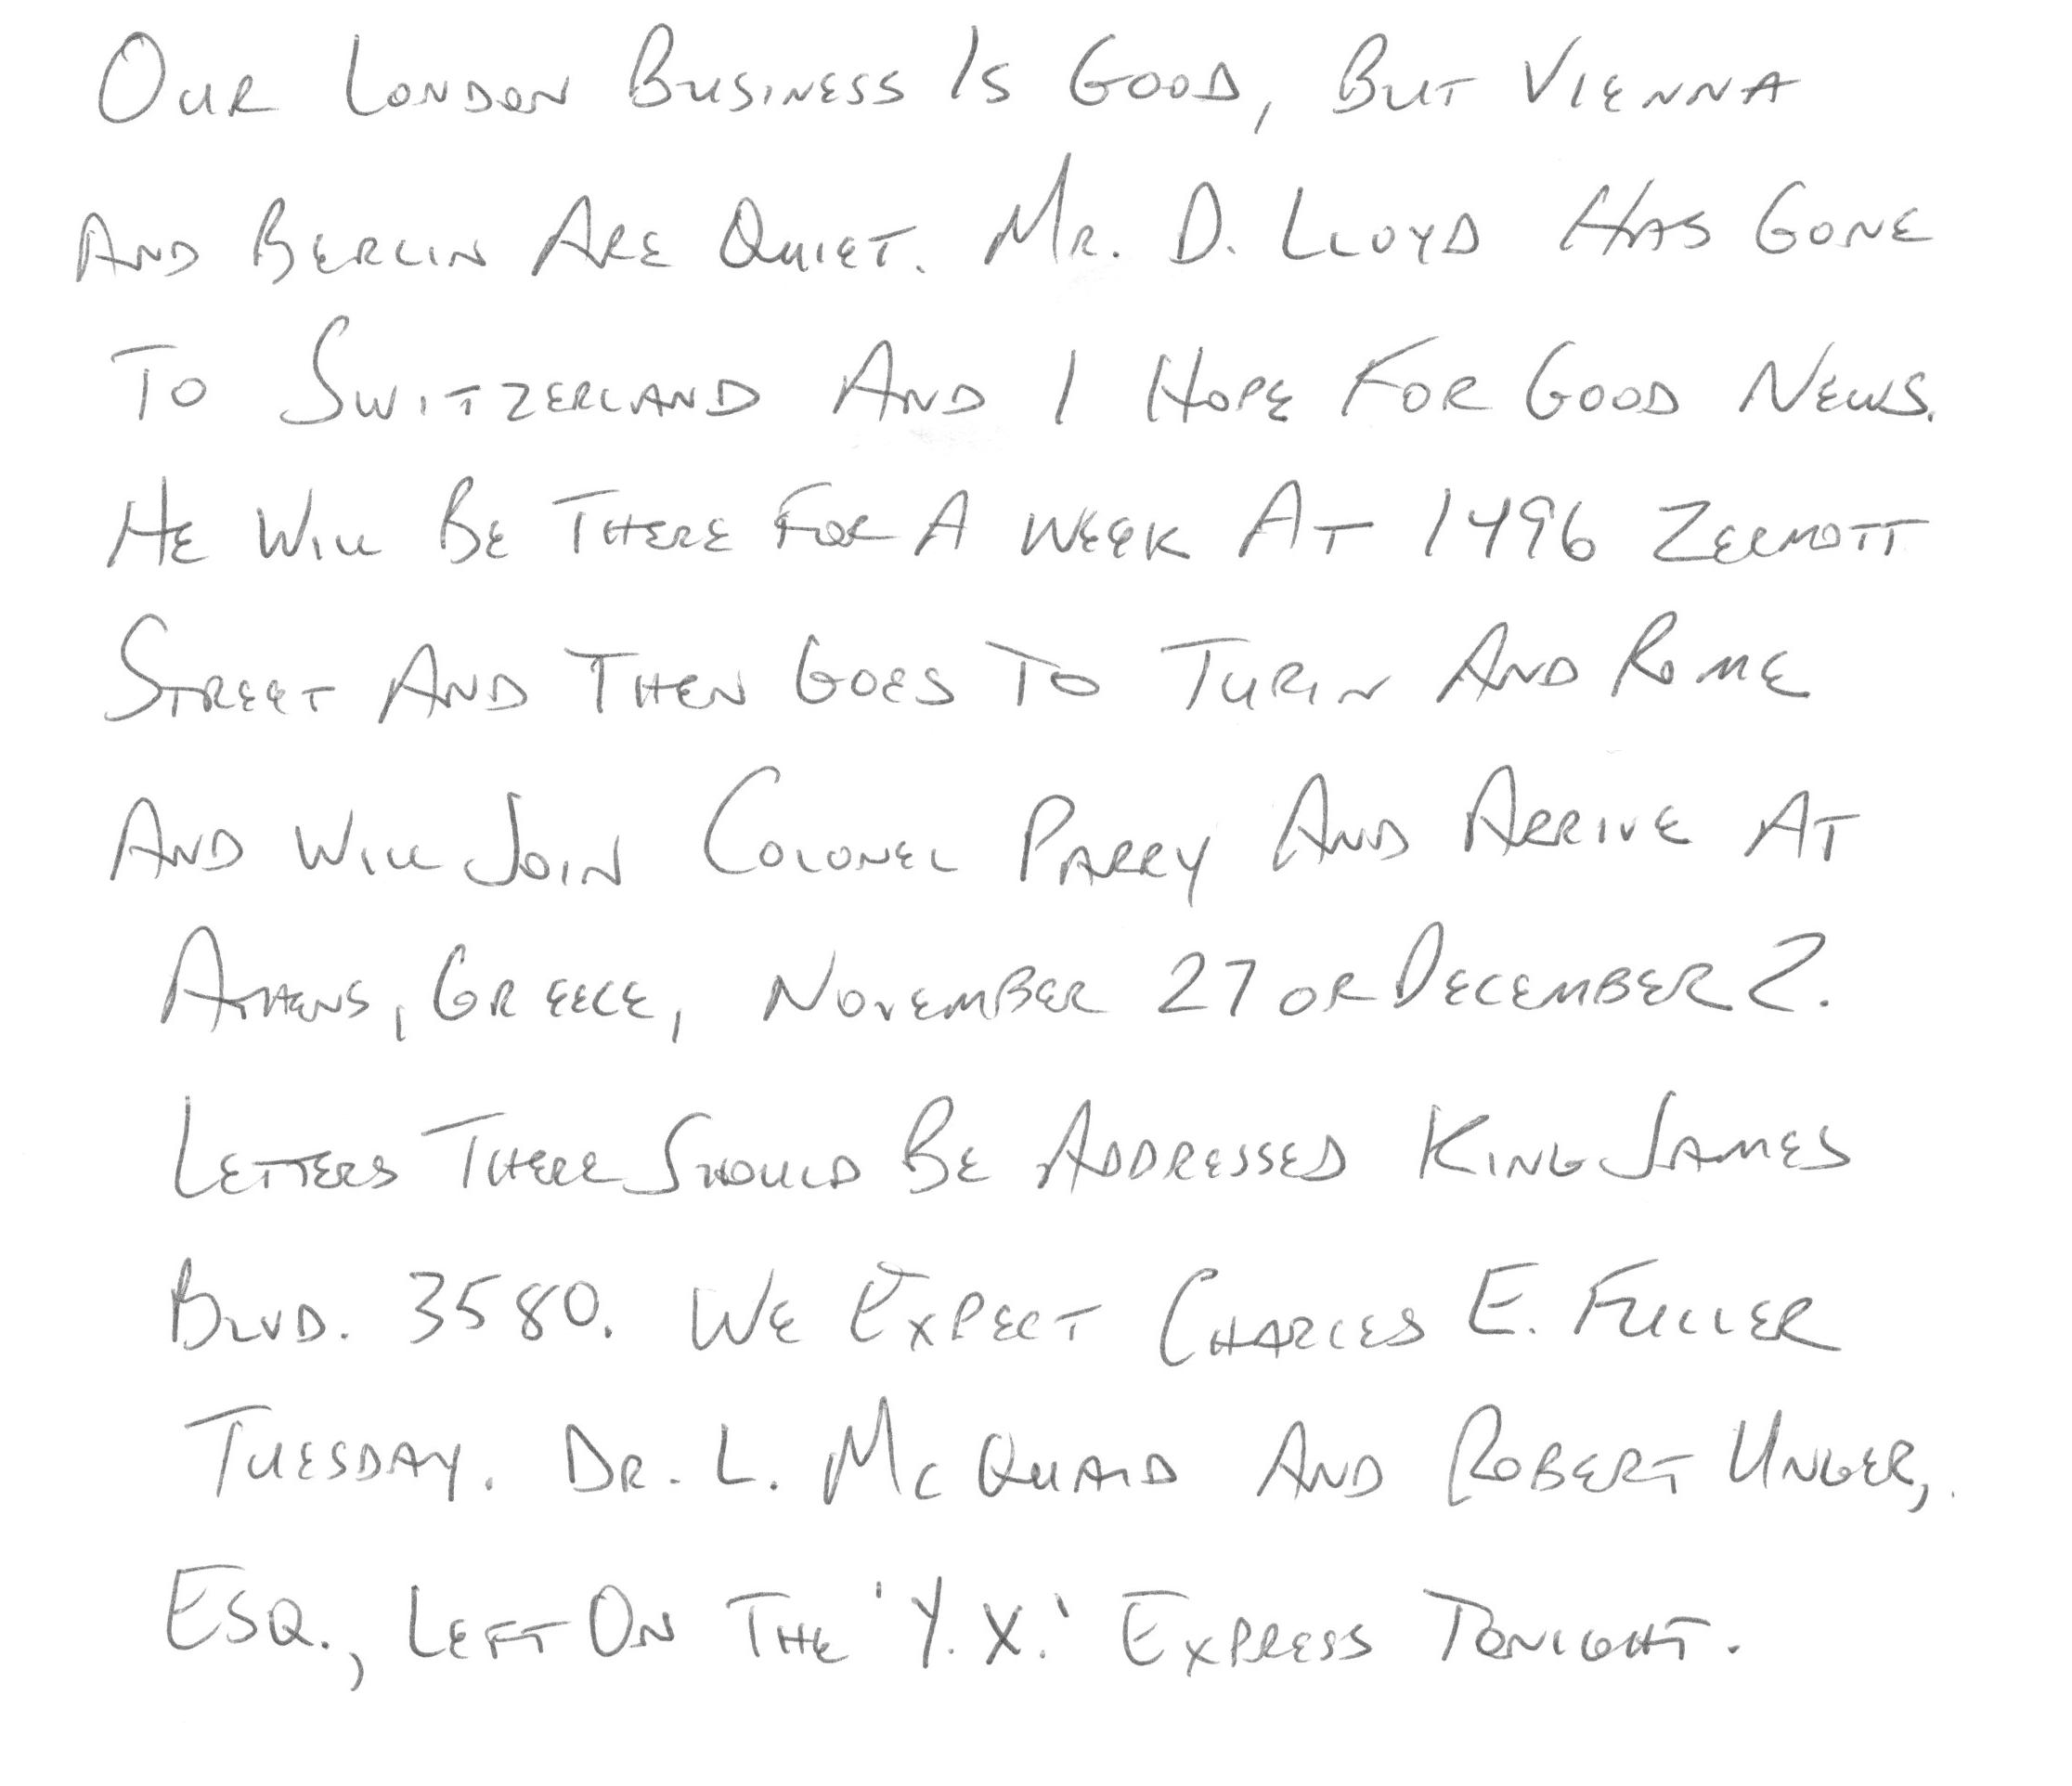 Our London Business Is Good, But Vienna
And Berlin Are Quiet. Mr. D. Lloyd Has Gone
To Switzerland And I Hope For Good News.
He Will Be There For A Week At 1496 Zermott
Street And Then Goes To Turin And Rome
And Will Join Colonel Parry And Arrive At
Athens, Greece, November 27 or December 2.
Letters There Should Be Addressed King James
Blvd. 3580. We Expect Charles E. Fuller
Tuesday. Dr. L. McQuaid And Robert Unger,
Esq., Left On The 'Y.X.' Express Tonight.